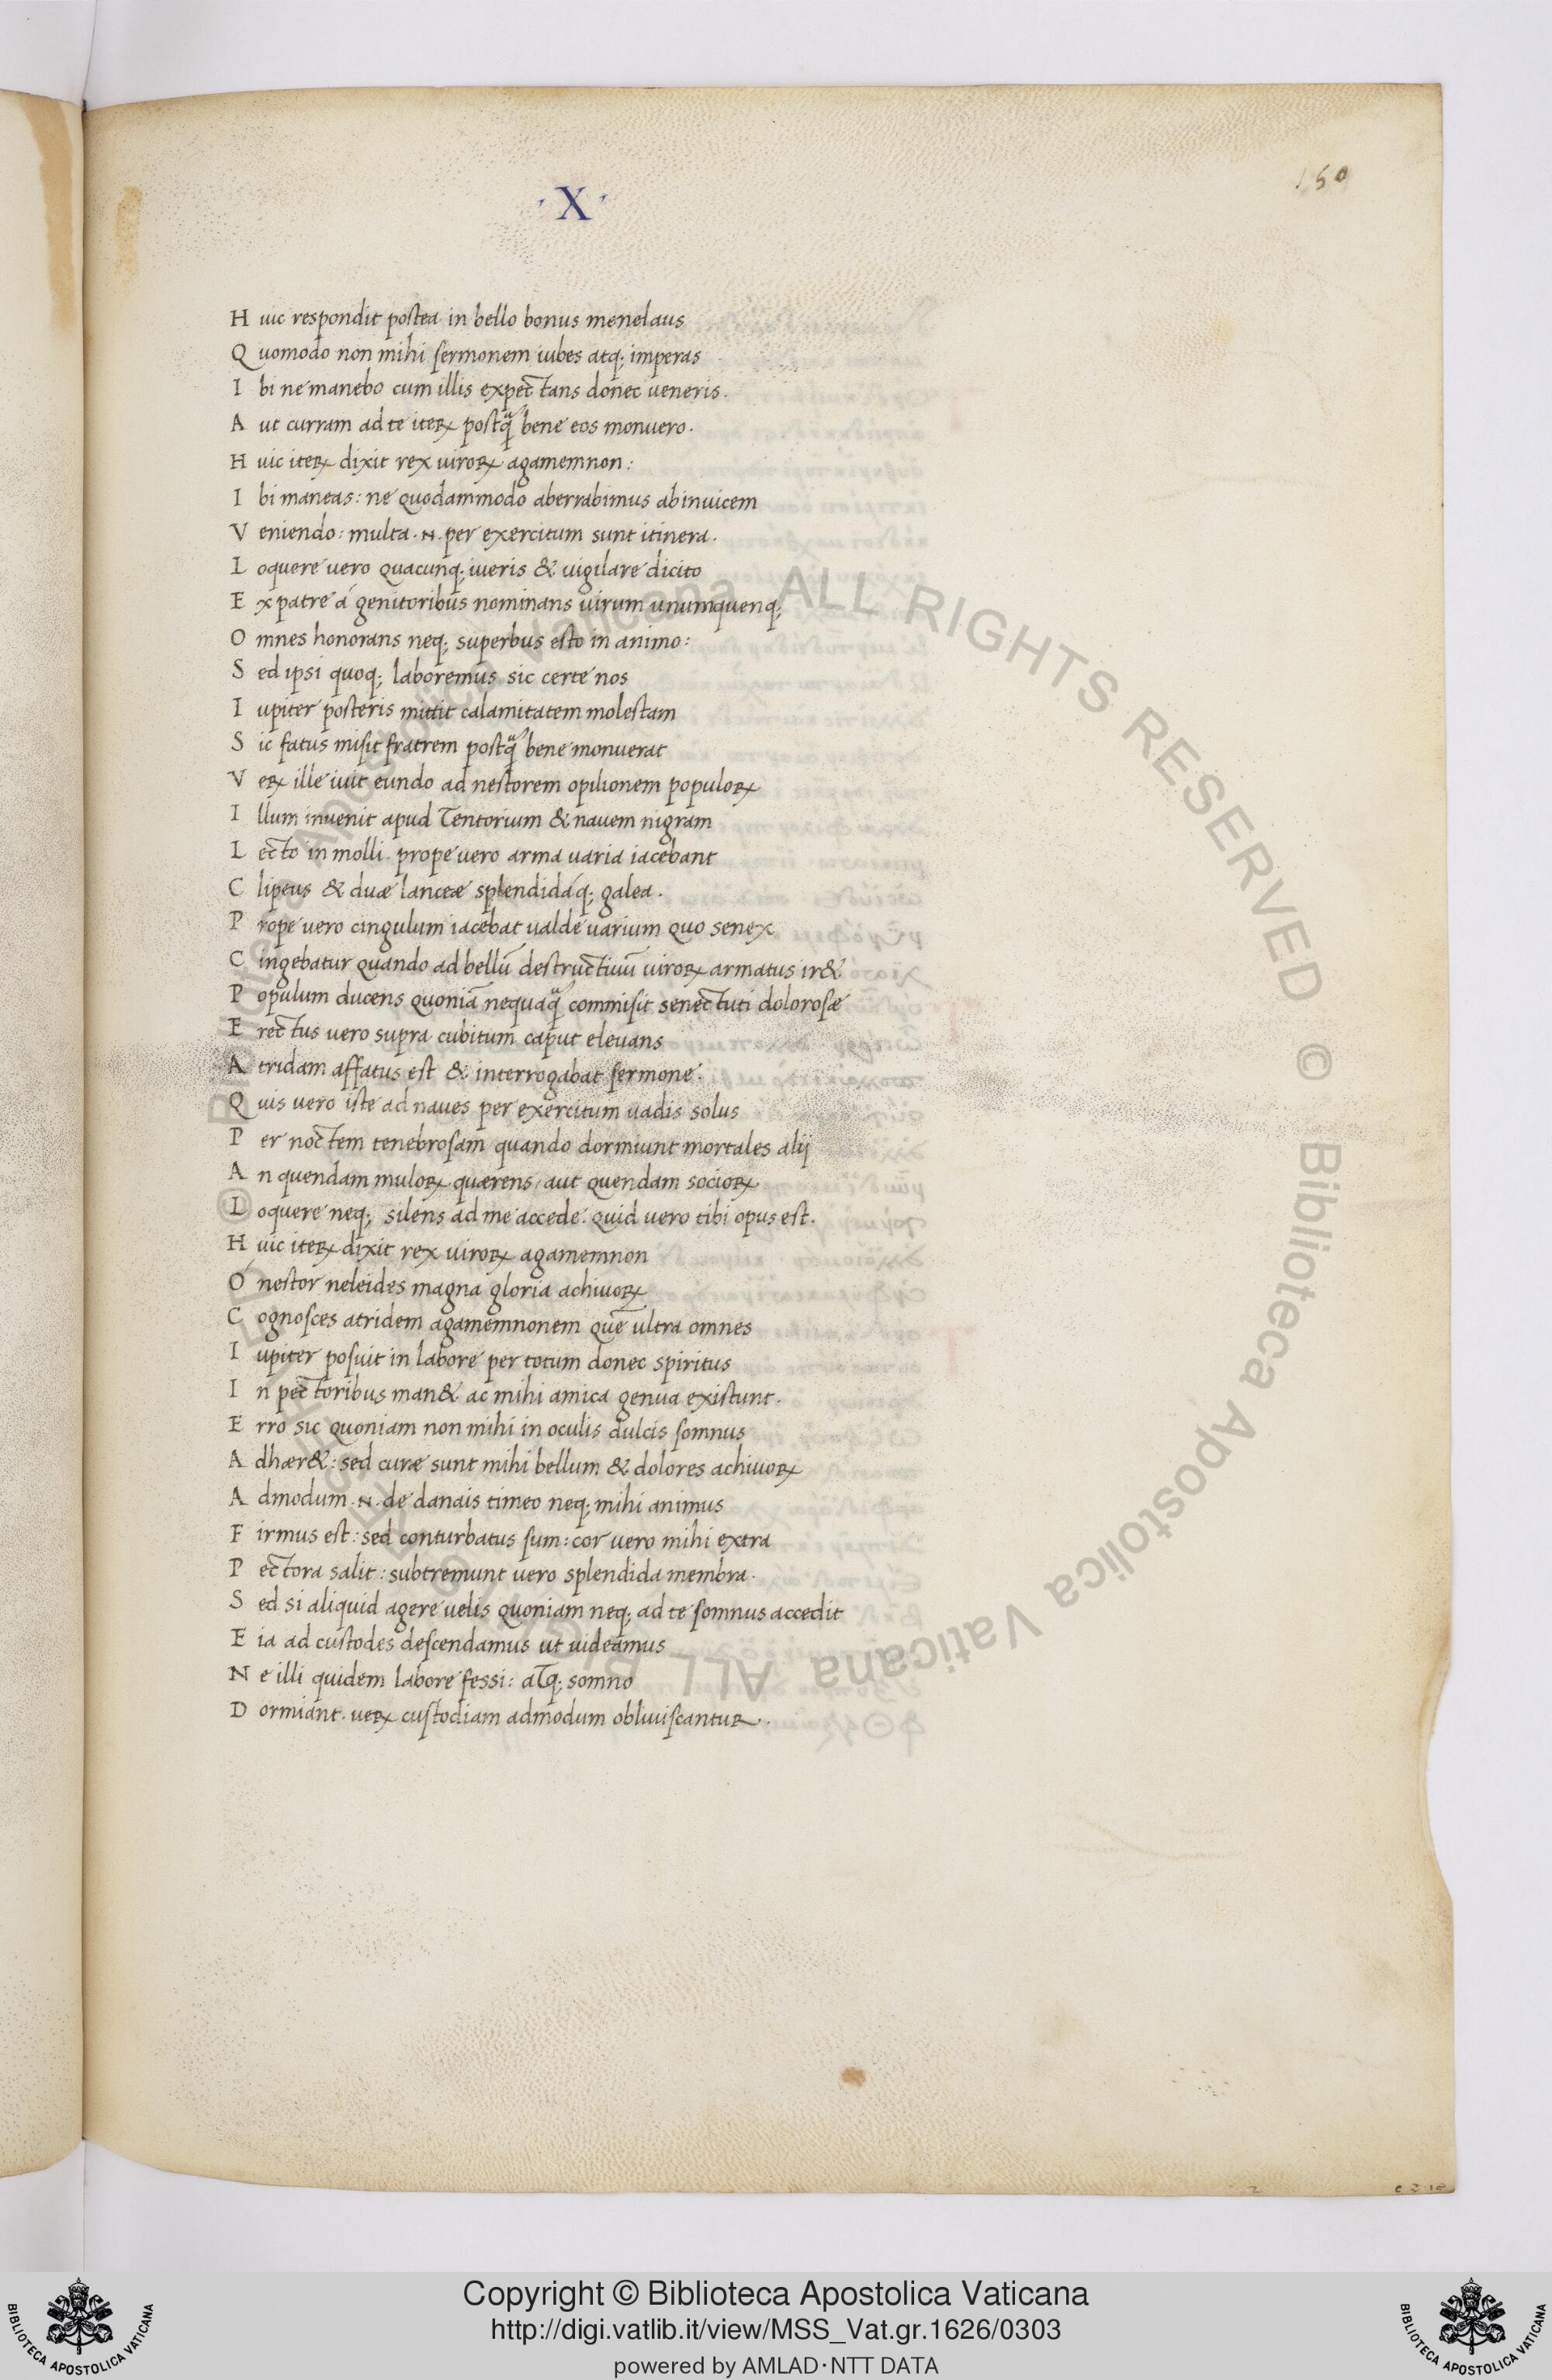 · X ·
150
H uic respondit postea in bello bonus menelaus
Q uomodo non mihi sermonem iubes atq; imperas
I bi ne manebo cum illis expectans donec ueneris.
A ut curram ad te iteꝝ postq̃ bene eos monuero.
H uic iteꝝ dixit rex uiroꝝ agamemnon:
I bi maneas: ne quodammodo aberrabimus abinuicem
V eniendo: multa .N. per exercitum sunt itinera.
L oquere uero quacunq; iueris & uigilare dicito
E x patre a genitoribus nominans uirum unumquenq;
O mnes honorans neq; superbus esto in animo:
S ed ipsi quoq; laboremus sic certe nos
I upiter posteris mittit calamitatem molestam
S ic fatus misit fratrem postq̃ bene monuerat
V eꝝ ille iuit eundo ad nestorem opilionem populoꝝ
I llum inuenit apud Tentorium & nauem nigram
L ecto in molli. prope uero arma uaria iacebant
C lipeus & duæ lanceæ splendidáq; galea.
P rope uero cingulum iacebat ualde uarium quo senex
C ingebatur quando ad bellũ destructiuũ uiroꝝ armatus ir&
P opulum ducens quoniã nequaq̃ commisit senectuti dolorosæ
E rectus uero supra cubitum caput eleuans
A tridam affatus est & interrogabat sermone.
Q uis uero iste ad naues per exercitum uadis solus
P er noctem tenebrosam quando dormiunt mortales alij
A n quendam muloꝝ quærens, aut quendam socioꝝ
L oquere neq; silens ad me accede: quid uero tibi opus est.
H uic iteꝝ dixit rex uiroꝝ agamemnon
Ó nestor neleides magna gloria achiuoꝝ
C ognosces atridem agamemnonem quẽ ultra omnes
I upiter posuit in labore per totum donec spiritus
I n pectoribus man& ac mihi amica genua existunt.
E rro sic quoniam non mihi in oculis dulcis somnus
A dhær&: sed curæ sunt mihi bellum & dolores achiuoꝝ
A dmodum .N. de danais timeo neq; mihi animus
F irmus est: sed conturbatus sum: cor uero mihi extra
P ectora salit: subtremunt uero splendida membra.
S ed si aliquid agere uelis quoniam neq; ad te somnus accedit
E ia ad custodes descendamus ut uideamus
N e illi quidem labore fessi: atq; somno
D ormiant. ueꝝ custodiam admodum obliuiscantur.
Copyright © Biblioteca Apostolica Vaticana
http://digi.vatlib.it/view/MSS_Vat.gr.1626/0303
powered by AMLAD·NTT DATA